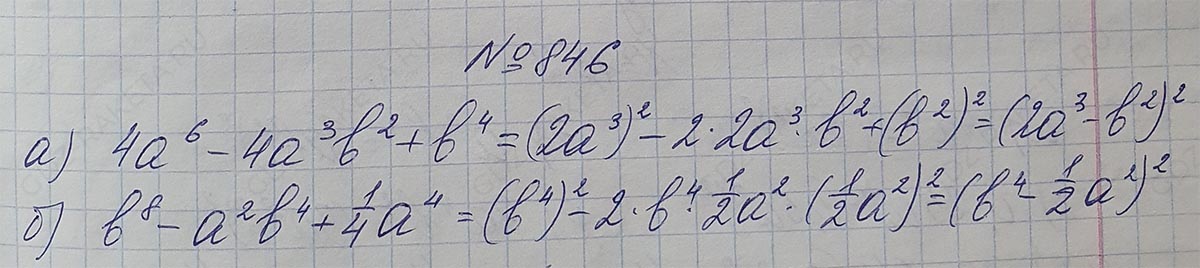 №846
а) 4a⁶ - 4a³b² + b⁴ = (2a³)² - 2·2a³·b² + (b²)² = (2a³ - b²)²
б) b⁸ - a²b⁴ + 1/4a⁴ = (b⁴)² - 2·b⁴·1/2a²·(1/2a²)² = (b⁴ - 1/2a²)²